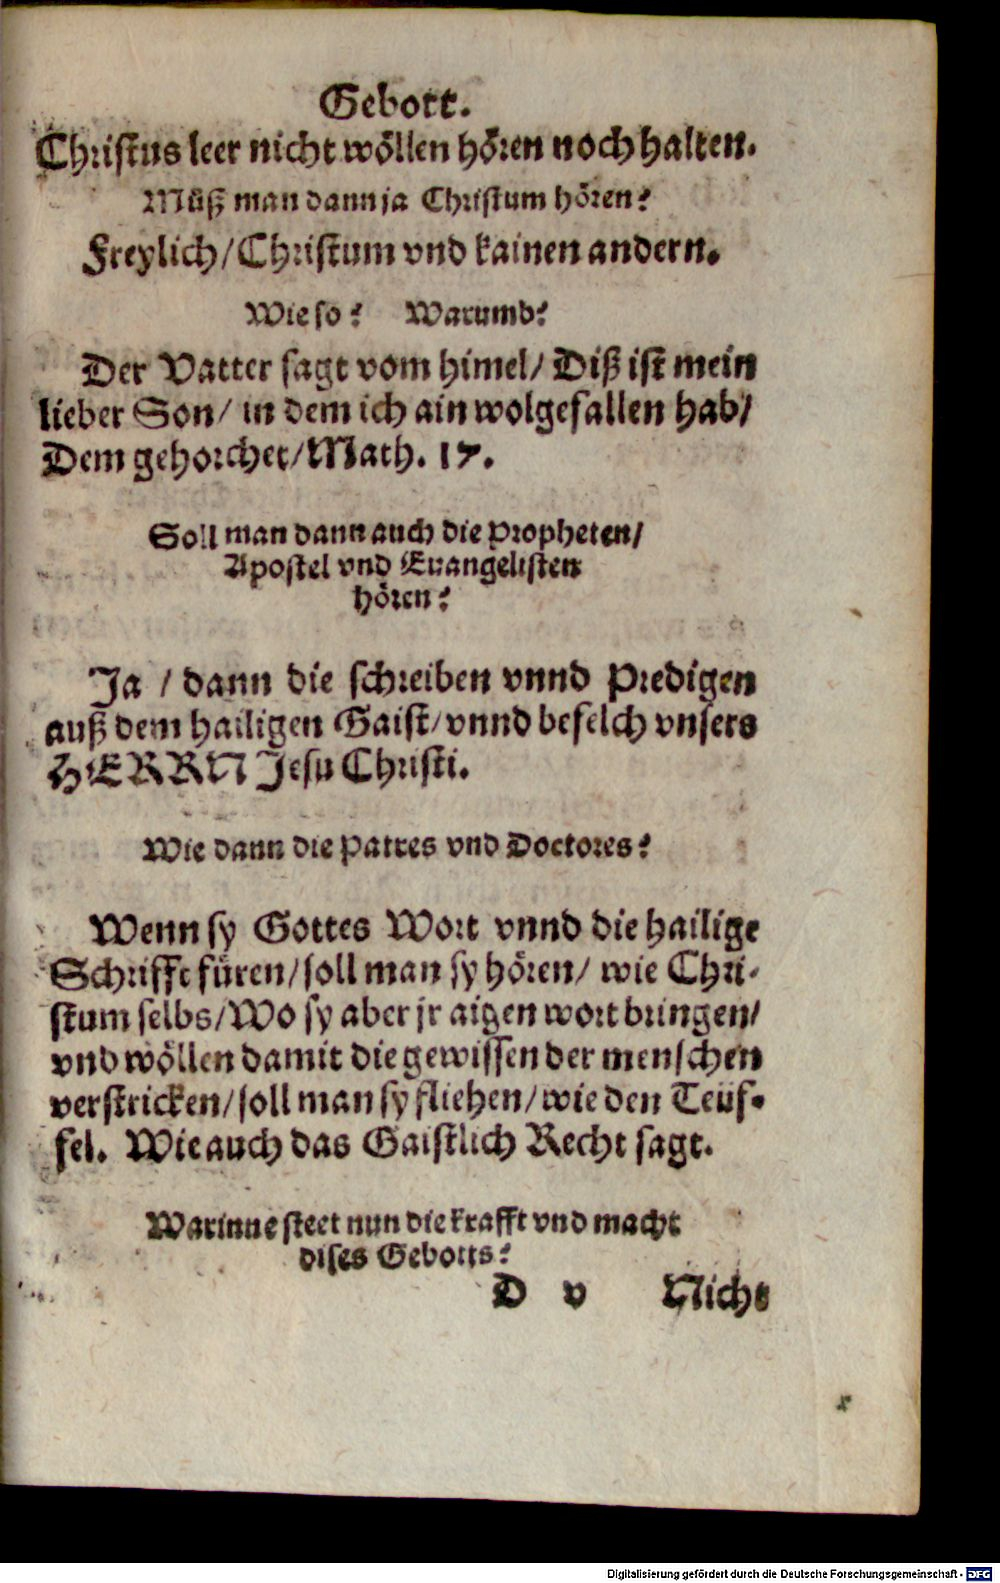 Gebott.
Christus leer nicht wöllen hören noch halten.
Müß man dann ja Christum hören?
Freylich/ Christum vnd kainen andern.
Wie so? Warumb?
Der Vatter sagt vom himel/ Diß ist mein
lieber Son/ in dem ich ain wolgefallen hab/
Dem gehorchet/ Math. 17.
Soll man dann auch die Propheten/
Apostel vnd Euangelisten
hören?
Ja / dann die schreiben vnnd Predigen
auß dem hailigen Gaist/ vnnd befelch vnsers
HERRN Jesu Christi.
Wie dann die Patres vnd Doctores?
Wenn sy Gottes Wort vnnd die hailige
Schrifft füren/ soll man sy hören/ wie Chri-
stum selbs/ Wo sy aber jr aigen wort bringen/
vnd wöllen damit die gewissen der menschen
verstricken/ soll man sy fliehen/ wie den Teüf-
fel. Wie auch das Gaistlich Recht sagt.
Warinne steet nun die krafft vnd macht
dises Gebotts?
D v Nicht
x
Digitalisierung gefördert durch die Deutsche Forschungsgemeinschaft - DFG